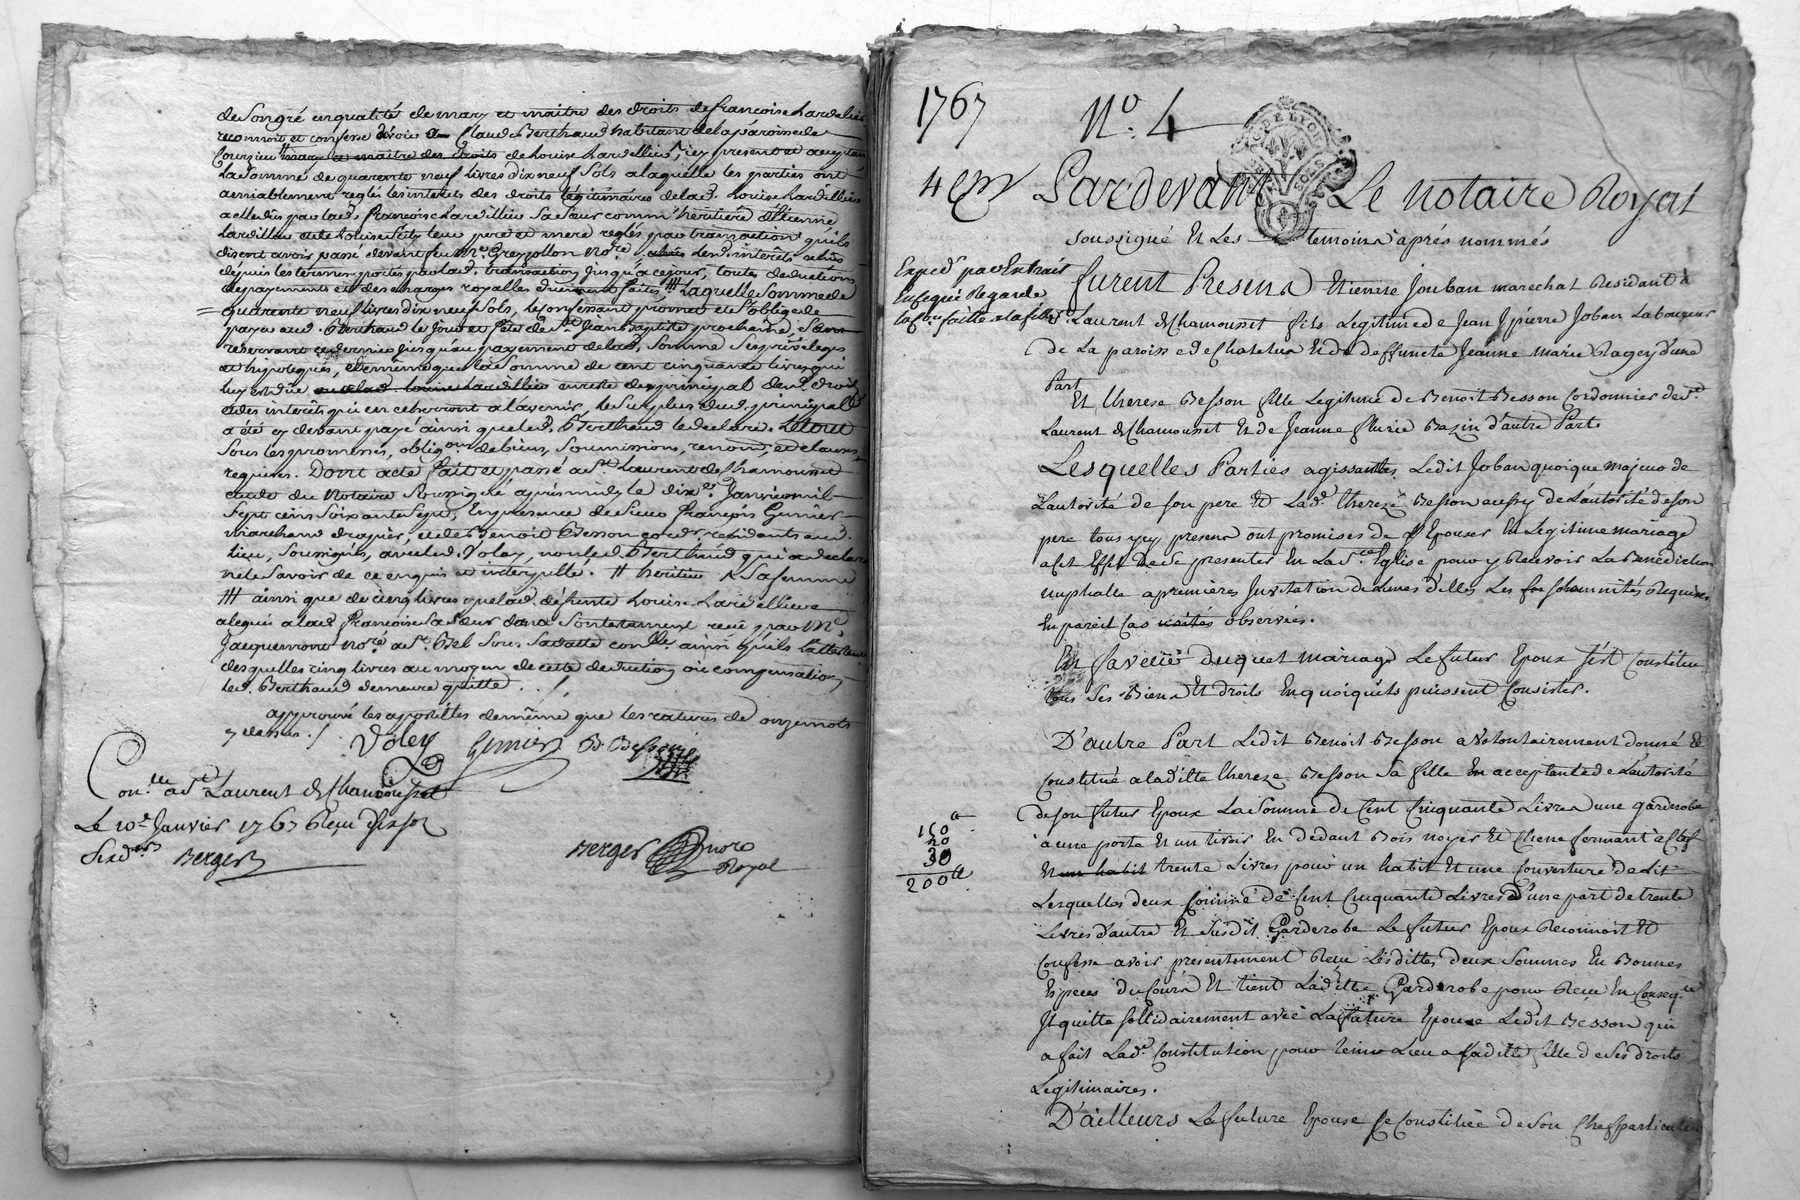 de son gré en qualité de mary et maitre des droits de francoise Lardelier
reconnoit et confesse devoir Claud Berthaud habitant de la paroisse de
Courzieu mary et maitre des droits de Louise Lardellier, icy present et acceptant
La Somme de quarente neuf livres dix neuf sols a laquelle les parties ont
amiablement reglés les interets des droits légitimaires de lad. Louise Lardellier
a elle dûs par lad. françoise Lardellier Sa Sœur comm' héritière d'Etienne
Lardellier et de Louise leur pere et mere reglés par transaction qu'ils
disent avoir passé devant feu Me. Greyzollon Nore. Lesd. intérêts
depuis les termes portés par lad. transaction jusqu'a ce jour, toutes deductions
de payements et des charges royalles faites, ++ Laquelle Somme de
quarente neuf livres dix neuf Sols, le confessant promet et s'oblige de
payer aud. Berthaud le jour et fête de St. Jean Baptiste prochaine, Sans
reservant ce dernier jusqu'au payement de lad. Somme Ses privileges
et hipoteques, de même que la Somme de cent cinquante livres qui
luy est düe en reste du principal desd. droits
et des interêts qui en cherront a l'avenir, le Surplus dud. principal
a été cy devant payé ainsi que led. Berthaud le declare. Le tout
Sous les promesses, obligons. de biens, Soumissions, renonc, et clauses
requises. Dont acte fait et passé a St. Laurent de Chamousset
etude du Notaire Soussigné après midy le dixe. Janvier mil
Sept cens Soixante Sept; En presence de Sieur François Gunier
marchand drapier, et de Benoit Besson cordr. residants aud.
lieu, Soussignés, avec led. Voley, non led. Berthaud qui a declaré
ne le Savoir de ce enquis et interpellé. ++ héritier Sa femme
+++ ainsi que de cinq livres que lad. défunte Louise Lardelliere
alegué a lad. Francoise Sa Sœur dans Son testament recu par Me.
Jacquemont Nore. a St. Bel Sous Sa datte conlle. ainsi qu'ils l'attestent
desquelles cinq livres au moyen de cette deduction ou compensation,
led. Berthaud demeure quitte . . /
approuvé les apostilles de même que les ratures de onze mots
cy dessus. /.
Voley Gunier B. Besson
Conlle. a St. Laurent de Chamousset
Le 10e. Janvier 1767 Reçu
Six ders Berger
Berger Nore
Royal
1767 No. 4
Pardevant Le Notaire Royal
soussigné Et Les temoins aprés nommés
Expedé par Extrait
En ce qui Regarde
faitte a la fille
furent Presens Etienne Jouban marechal Residant à
St. Laurent de Chamousset fils Legitime de Jean Pierre Joban Laboureur
de La paroisse de Chatelus Et de deffuncte Jeanne Marie Ragey d'une
Part
Et Therese Besson fille Legitime de Benoit Besson Cordonnier de St.
Laurent de Chamousset Et de Jeanne flurie Bazin d'autre Part
Lesquelles Parties agissantes Ledit Joban quoique majeur de
L'autorité de son pere Et Lade. thereze Besson aussy de l'autorité de son
pere tous ycy presens ont promises de s'Epouser En Legitime mariage
a cet Effet de se presenter En La Ste. Eglise pour y Recevoir La Benediction
nuptialle a premières Invitation de L'une d'elles Les solemnités Requises
En pareil Cas observées.
En faveur duquel mariage Le futur Epoux s'est Constitué
tous Ses Biens Et droits En quoiqu'ils puissent Consister.
D'autre Part Ledit Benoit Besson a volontairement donné Et
Constitué a laditte thereze Besson Sa fille En acceptante de l'autorité
de son futur Epoux La Somme de Cent Cinquante Livres une garderobe
à une porte Et un tiroir En dedant Bois noyer Et Chene fermant a Clef
Et un habit trente Livres pour un habit Et une Couverture de Lit
150
20
30
200
Lesquelles deux Somme de Cent Cinquante Livres d'une part de trente
Livres d'autre Et Susdit Garderobe Le futur Epoux Reconnoit Et
Confesse avoir presentement Reçu Lesdittes deux Sommes En Bonnes
Especes du Cours Et tient Laditte Garderobe pour Reçue En Conseqce.
Il quitte sollidairement avec La future Epouse Ledit Besson qui
a fait Lade. Constitution pour tenir Lieu a saditte fille de Ses droits
Legitimaires.
D'ailleurs La future Epouse se Constitüe de Son Chef particulier